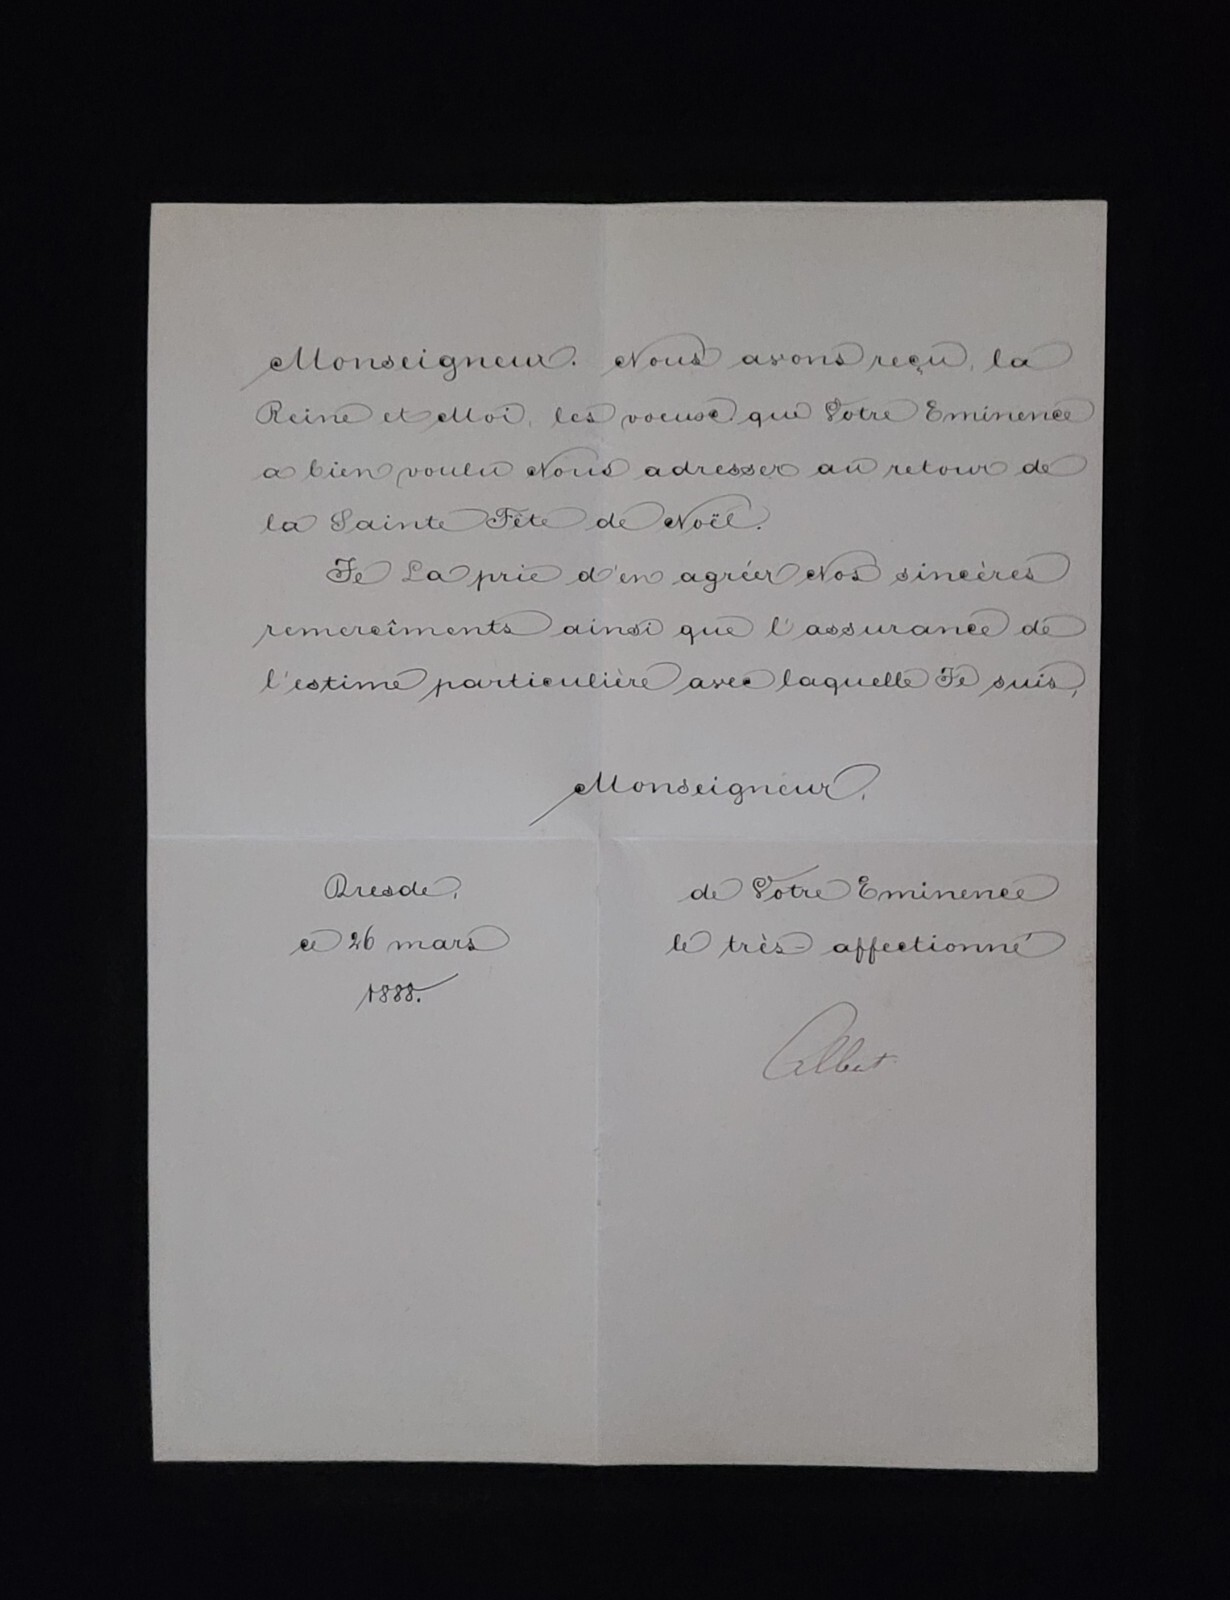 Monseigneur. Nous avons reçu, la
Reine et Moi, les voeux que Votre Eminence
a bien voulu Nous adresser au retour de
la Sainte Fête de Noël.
Je La prie d'en agréer Nos sincères
remercîments ainsi que l'assurance de
l'estime particulière avec laquelle Je suis,
Monseigneur,
de Votre Eminence
le très-affectionné
Albert
Dresde,
ce 26 mars
1888.